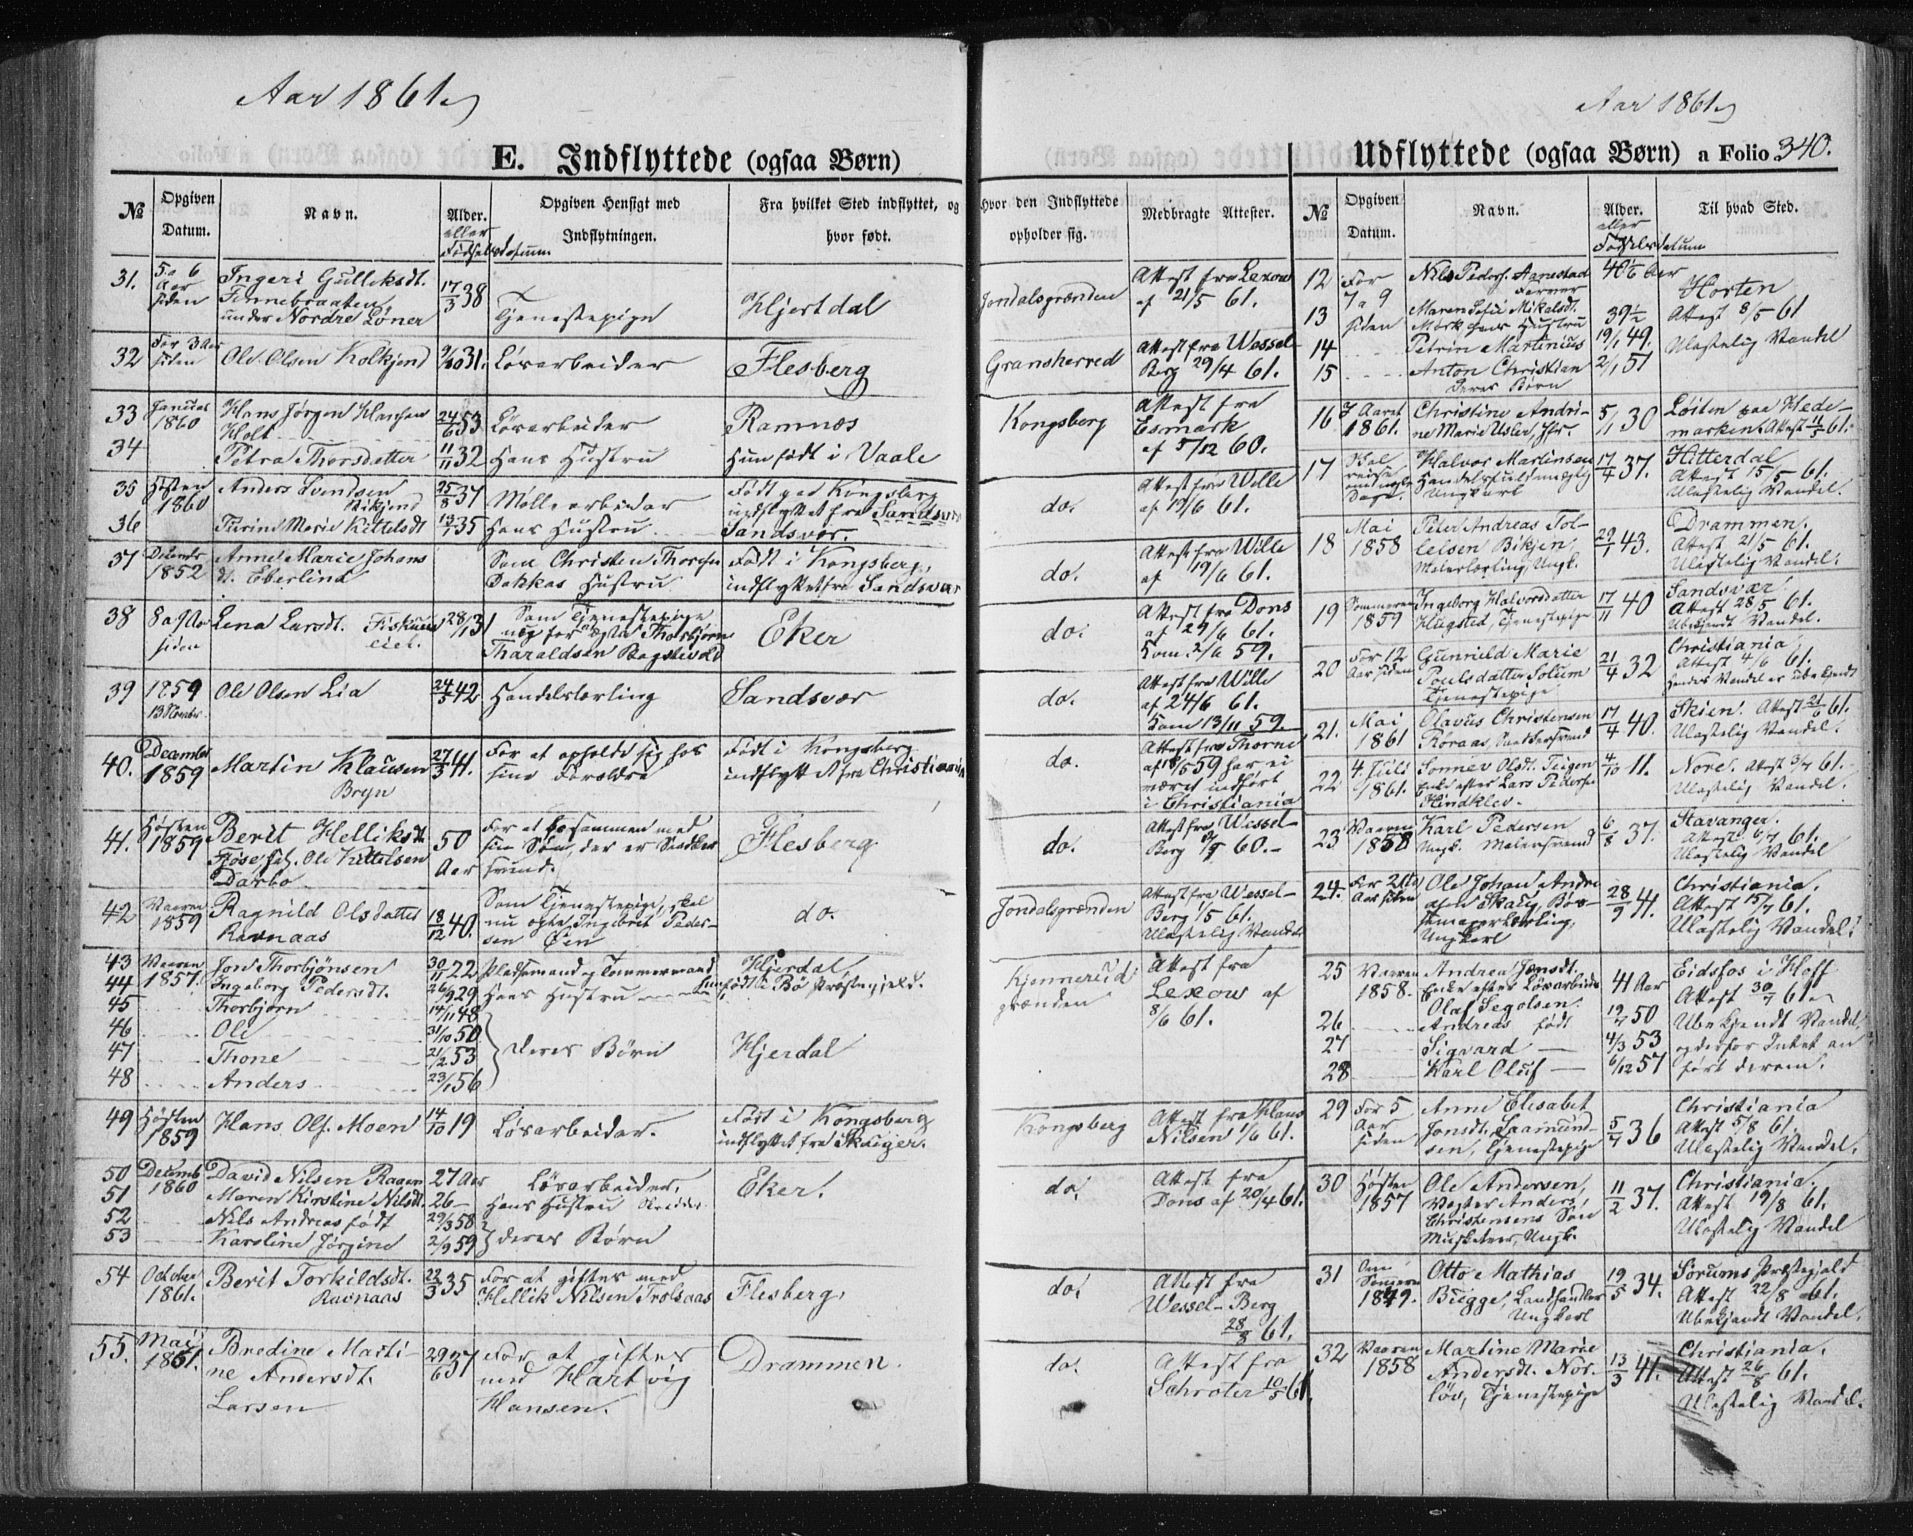 Aar 1861.
Aar 1861.
E. Indflyttede (ogsaa Børn)
Udflyttede (ogsaa Børn) a Folio 340.
№
Opgiven Datum.
Navn.
Alder. eller Fødselsdatum
Opgiven Hensigt med Indflytningen.
Fra hvilket Sted indflyttet, og hvor født.
Hvor den Indflyttede opholder sig.
Medbragte Attester.
31. 5 a 6 Aar siden
Ingeri Gulleksdt. Finnebraaten under Nordre Løner
17/3 38
Tjenestepige
Hjertdal
Jondalsgrænden
Attest fra Lexow af 21/5 61.
32 For 3 Aar siden
Ole Olsen Kolkjend
9/10 31.
Løsarbeider
Flesberg
Gransherred
Attest fra Wessel Berg 29/4 61.
33 Januar 1860
Hans Jørgen Hansen Holt
24/6 53
Løsarbeider
Ramnæs
Kongsberg
Attest fra Esmark af 5/12 60.
34
Petra Thorsdatter
11/11 32
Hans Hustru
Hun født i Vaale
35 Høsten 1860
Anders Svendsen
25/8 37
Møllearbeider
Født paa Kongsberg indflyttet fra Sandsvær
do.
Attest fra Wille af 19/6 61.
36
Turine Marie Kittelsdt
35
Hans Hustru
Sandsvær.
37 Decembr 1852
Anne Marie Johans dt. Eberlind
Som Christen Thorsen Bakkas Hustru
Født i Kongsberg, indflyttet fra Sandsvær
do.
Attest fra Wille af 19/6 61.
38 8 a 9 Aar siden
Lena Larsdt.
28/1 31
Som Tjenestepige, nu for at ægte Thorbjørn Tharaldsen
Eker
do.
Attest fra Dons af 29/6 61. Kom 2/6 59.
39 1859 13 Novbr.
Ole Olsen Lia
24/3 42
Handelslærling
Sandsvær
do.
Attest fra Wille af 24/6 61. Kom 13/11 59.
40. December 1859
Martin Klausen Bryn
27/3 41.
For at opholde sig hos sine Forældre
Født i Kongsberg indflyttet fra Christiania
do.
Attest fra Thorne af 18/5 59 har ei været indført i Christiania
41. Høsten 1859
Berit Helliksdt. Ole Kittelsen Darbo
50 Aar
For at bo sammen med sin Søn, der er
Flesberg
do.
Attest fra Wessel-Berg 60.
42 Vaaren 1859
Ragnild Olsdatter Ravnaas
18/12 40.
Som Tjenestepige, skal nu ægte Ingebret Pedersen Øen
do.
Jondalsgrænden
Attest fra Wessel-Berg 1/5 61. Ulastelig Vandel
43 Vaaren 1857.
Jon Thorbjönsen
30/11 22
Pladsmand og Tømmermand
Hjerdal
Kjennerud grænden
Attest fra Lexow af 8/6 61.
44
Ingeborg Pedersdt.
26/9 29
Hans Hustru
født i Bø Præstegjeld.
45
Thorbjørn
14/11 48
46
Ole
31/10 50
deres Børn
Hjerdal
47
Thone
21/2 53
48
Anders
23/1 56
49 Høsten 1859
Hans Ols. Moen
14/10 19
Løsarbeider.
Født i Kongsberg indflyttet fra Modum
Kongsberg
Attest fra Hans Nilsen 1/6 61.
50 Decemb 1860
David Nilsen Raaen
27 Aar
Løsarbeider,
Eker.
do.
Attest fra Dons af 20/4 61.
51
Maren Kirstine Nilsdt.
26 —
Hans Hustru
52
Nils Andreas født
29/3 58
deres Børn
53
Karoline Jørgine
2/9 59
54 October 1861.
Berit Torkildsdt. Ravnaas
22/3 35
For at giftes med Hellik Nilsen Trolsaas
Flesberg.
do.
Attest fra Wessel-Berg 28/8 61.
55. Mai 1861.
Bredine Martine Andersdt. Larsen
29/6 37
For at giftes med Hartvig Hansen.
Drammen.
do.
Attest fra Schrøter 10/5 61.
№
Opgiven Datum.
Navn.
Alder. eller Fødselsdatum
Til hvad Sted.
12 For 7 a 9 siden
Nils Peders. Aanestad
40 1/6 Aar
Horten Attest 8/5 61 Ulastelig Vandel
13
Maren Sofie Mikelsdt. Mørk hans Hustru
39 1/2
14
Petrin Martinius
19/1 49.
15
Anton Christian deres Børn
2/1 51
16 7 Aaret 1861.
Christine Andrine Marie Usler, Jfr.
5/11 30
Løiten paa Hedemarken. Attest 11/5 61.
17
Halvor Martinsen Handelsfuldmægtig Ungkarl
17/4 37.
Hitterdal Attest 15/5 61. Ulastelig Vandel.
18 Mai 1858
Peter Andreas Tollefsen Bikjen, Malerlærling, Ungk.
29/1 43.
Drammen. Attest 21/5 61. Ulastelig Vandel.
19 Sommeren 1859
Ingeborg Halvorsdatter Klugsted, Tjenestepige
17/11 40
Sandsvær Attest 28/5 61. Ubekjendt Vandel.
20 For 12 Aar siden
Gunnild Marie Poulsdatter Solum Tjenestepige
21/4 32
Christiania Attest 4/6 61. hendes Vandel er ubekjendt
21. Mai 1861
Olavus Christensen Roraas,
17/4 40.
Skien. Attest 21/6 61. Ulastelig Vandel.
22 4. Juli 1861.
Sønnev Olsdt. Teigen Enke efter Lars Pedersen
4/10 11.
Nore. Attest 3/7 61. Ulastelig Vandel.
23 Vaaren 1858
Karl Pedersen Ungk. Malersvend
6/8 37.
Stavanger. Attest 6/7 61. Ulastelig Vandel
24. For 2 Aar siden
Ole Johan Andreasen Skalij, Bøssemagerlærling, Ungkarl
28/9 41.
Christiania. Attest 15/7 61. Ulastelig Vandel.
25 Vaaren 1858.
Andrea Jonsdt. Enke efter Løsarbeider Olaf Segolsen.
41 Aar
Eidsfos i Hoff Attest 30/7 61. Ubekjendt Vandel, og derfor Intet anført derom.
26
Andreas født
50
27
Sigvard —
4/3 53
28
Karl Oluf —
6/12 57
29 For 5 Aar siden
Anne Elisabet Jonsdt. Saamundsen, Tjenestepige
5/7 36
Christiania Attest 5/8 61. Ulastelig Vandel.
30 Høsten 1857
Ole Andersen, Vægter Anders Christensens Søn Musketeer, Ungk.
11/2 37.
Christiania. Attest 19/8 61. Ulastelig Vandel
31 Om Sommeren 1849.
Otto Mathias Bugge, Landhandler Ungkarl
19/5 34.
Sørums Præstegjeld Attest 22/8 61. Ubekjendt Vandel.
32 Vaaren 1858
Martine Marie Andersdt. Norløv, Tjenestepige
13/3 41.
Christiania. Attest 26/8 61. Ulastelig Vandel.